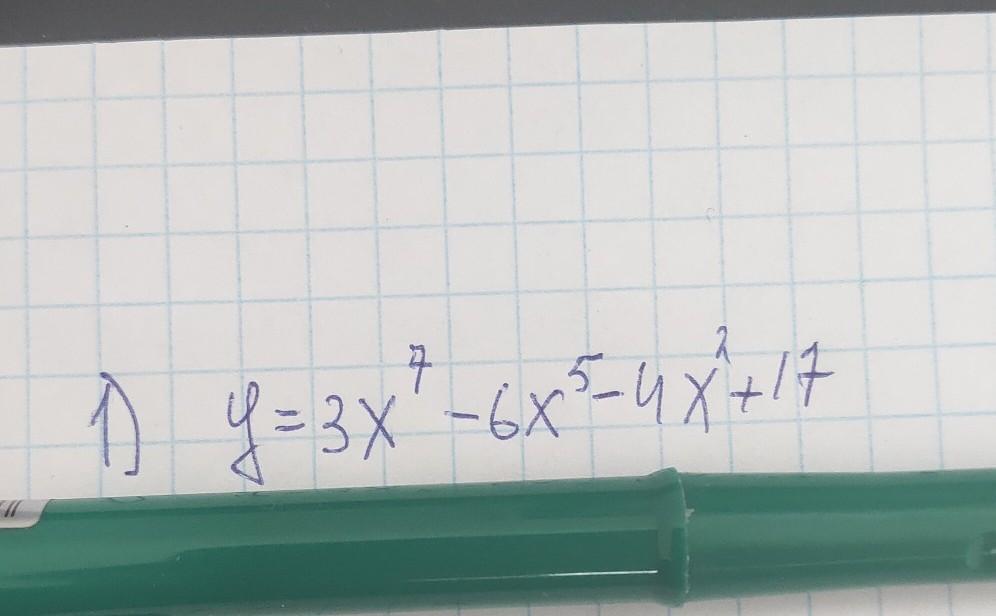 1) y=3x⁷-6x⁵-4x²+17